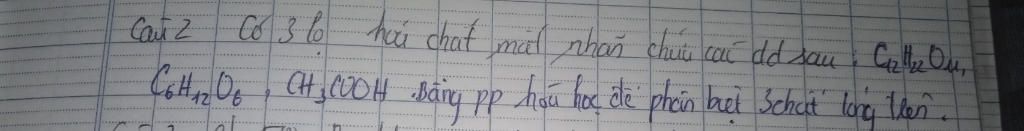 Câu 2 Có 3 lọ hoá chất mất nhãn chứa các dd sau : C12H22O11,
C6H12O6, CH3COOH. Bằng pp hoá học để phân biệt 3 chất lỏng trên.